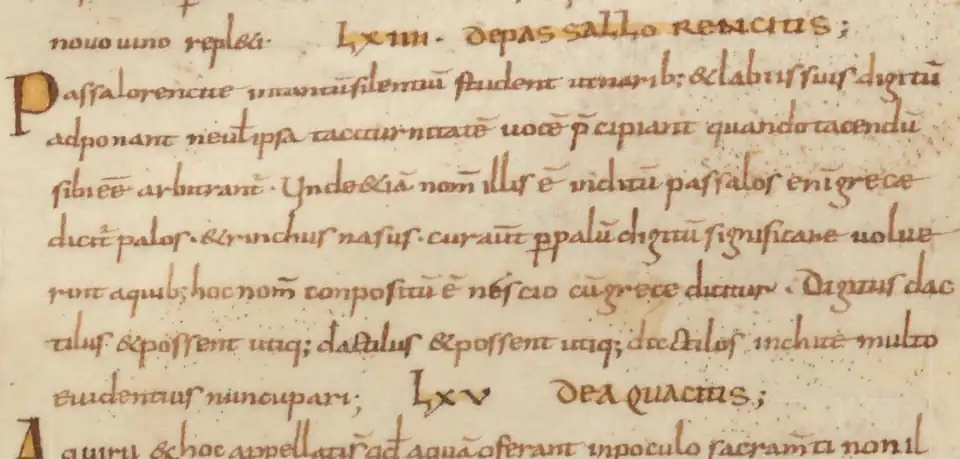 novo uino repl&i· Lxiiii· depassallo rencitis;
Passalorencite intantū silentiū student utnarib; & labiis suis digitū
adponant neuł ipsa taciturnitatē uocē p̄cipiant quando tacendū
sibi eē arbitrant̄· Unde &iā nom̄ illis ē inditū passalos enī grece
dicit̄ palos· & rinchus nasus· cur aūt p̱ palū digitū significare uolue
rint a quib; hoc nom̄ conpositū ē nescio cū grece dicitur· Digitus dac
tilus & possent utiq; dactilus & possent utiq; dictilos inchite multo
euidentius nuncupari; Lxv de aquaciis;
Aquirii & hoc appellati s̄ qđ aquā oferant in poculo sacram̄ti non il